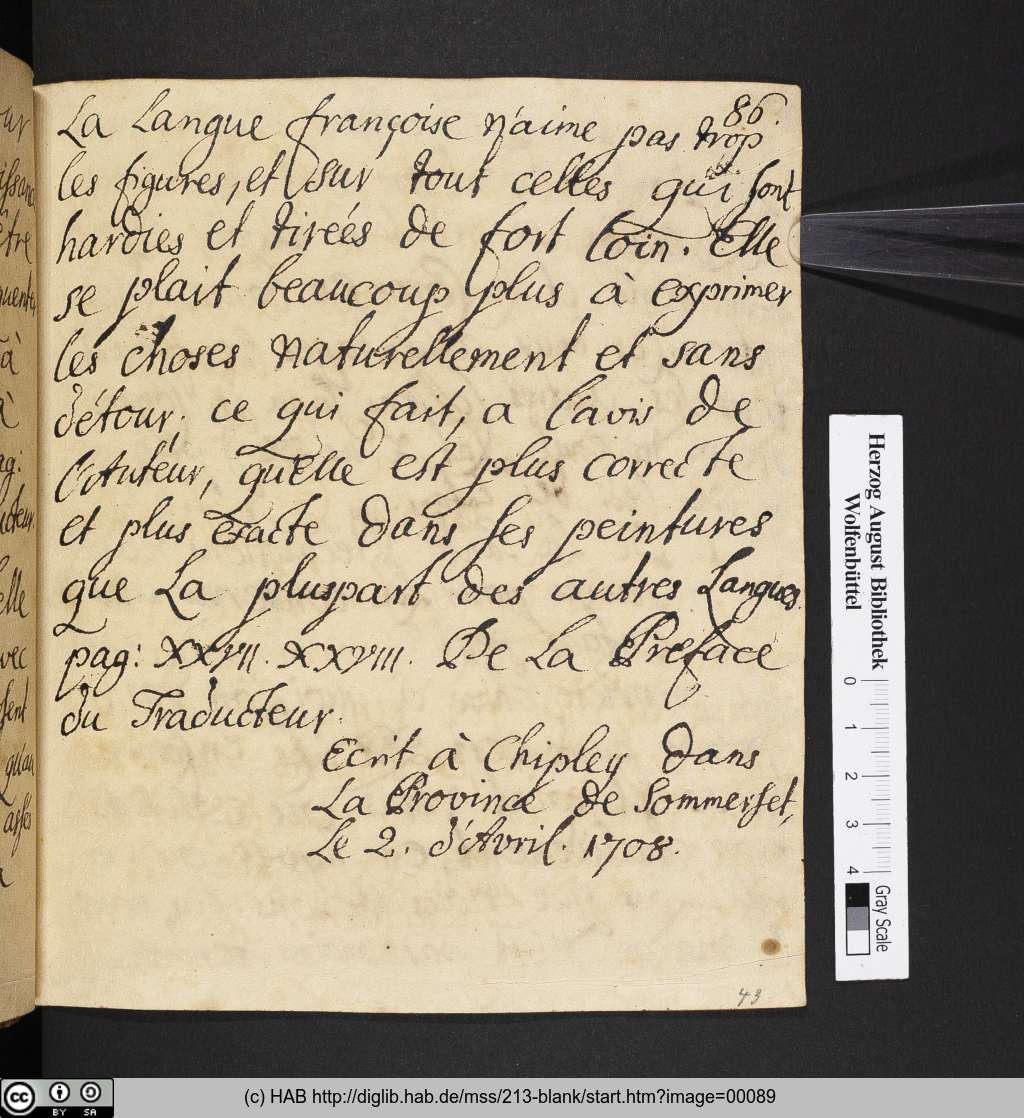 86.
La Langue françoise n'aime pas trop
les figures, et sur tout celles qui sont
hardies et tireés de fort loin. Elle
se plait beaucoup plus à exprimer
les choses naturellement et sans
détour; ce qui fait, a l'avis de
l'Auteur, qu'elle est plus correcte
et plus exacte dans ses peintures
que La pluspart des autres Langues.
pag: XXVII. XXVIII. De La Preface
du Traducteur.
Ecrit à Chipley dans
La Province de Sommerset,
Le 2. d'Avril. 1708.
43
Herzog August Bibliothek
Wolfenbüttel
0 1 2 3 4
Gray Scale
cc BY SA
(c) HAB http://diglib.hab.de/mss/213-blank/start.htm?image=00089